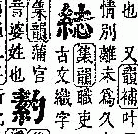 也又韻補叶
情別離未爲久
集韻職吏
古文織字
集韻蒲官
音婆姓也